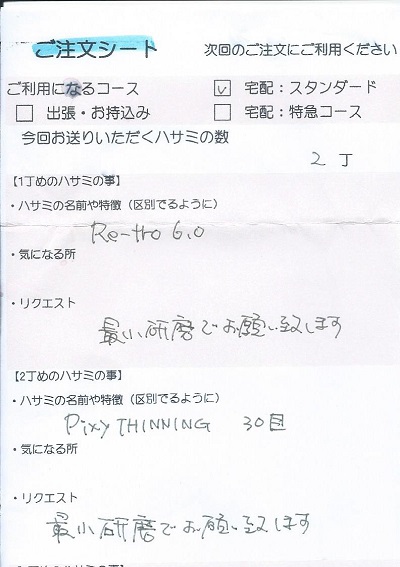 ご注文シート 次回のご注文にご利用ください
ご利用になるコース ☑ 宅配：スタンダード
□ 出張・お持込み □ 宅配：特急コース
今回お送りいただくハサミの数
2 丁
【1丁めのハサミの事】
・ハサミの名前や特徴（区別でるように）
Re-tro 6.0
・気になる所
・リクエスト
最小研磨でお願い致します
【2丁めのハサミの事】
・ハサミの名前や特徴（区別でるように）
Pixy THINNING 30目
・気になる所
・リクエスト
最小研磨でお願い致します